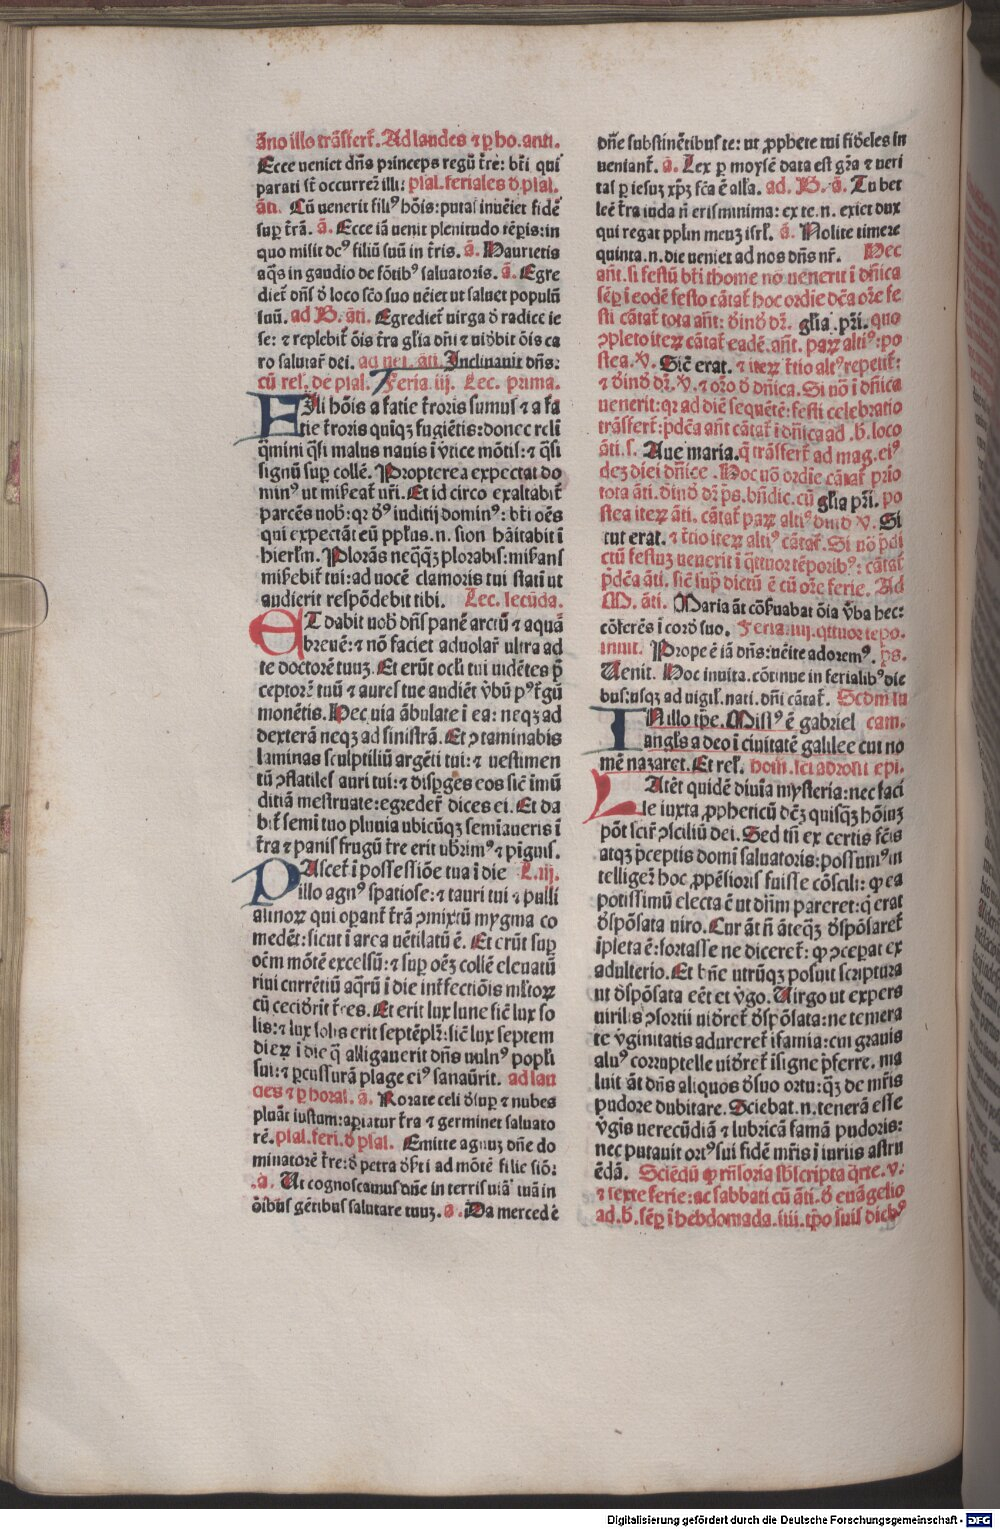 āno illo trāsfert̄. Ad laudes ⁊ ꝑ ho. anti.
Ecce veniet dn̄s princeps regū tr̄e: bt̄i qui
parati st̄ occurrer̄ illi: psal. feriales ď psal.
āti. Cū venerit filiꝰ hōis: putas inuēiet fidē
suꝑ tr̄ā. ā. Ecce iā venit plenitudo tēꝑis: in
quo misit deꝰ filiū suū in tr̄is. ā. Haurietis
aq̄s in gaudio de fōtibꝰ saluatoris. ā. Egre
diet̄ dn̄s ď loco sc̄o suo vēiet ut saluet populū
suū. ad B. āti. Egrediet̄ uirga ď radice ie
se: ⁊ replebit̄ ōis tr̄a gl̄ia dn̄i ⁊ uiďbit ōis ca
ro salutar̄ dei. ad uet. āti. Inclinauit dn̄s:
cū rel. de psal. Feria. iij. Lec. prima.
Filij hōis a facie tr̄oris sumus ⁊ a fa
cie tr̄oris quinqꝫ fugiētis: donec reli
q̄mini q̄si malus nauis i v̄tice mōtis: ⁊ q̄si
signū suꝑ collē. Propterea expectat do
minꝰ ut miseat̄ ur̄i. Et id circo exaltabit̄
parcēs uob: qꝛ ďꝰ iuditij dominꝰ: bt̄i oēs
qui expectāt eū ppl̄us. n. sion hāitabit ī
hierl̄m. Plorās neq̄qꝫ plorabis: misans
miseb̄it̄ tui: ad uocē clamoris tui stati ut
audierit respōdebit tibi. Lec. secūda.
ET dabit uob dn̄s panē arctū ⁊ aquā
breuē: ⁊ nō faciet aduolar̄ ultra ad
te doctorē tuuꝫ. Et erūt oculi tui uidētes p̄
ceptorē tuū ⁊ aures tue audiēt v̄bū pꝰ t̄gū
monētis. Hec uia ābulate ī ea: neqꝫ ad
dexterā neqꝫ ad sinistrā. Et ↄtaminabis
laminas sculptiliū argēti tui: ⁊ uestimen
tū ↄflatiles auri tui: ⁊ disꝑges eos sic̄ īmū
ditiā mestruate: egreder̄ dices ei. Et da
bit̄ semi tuo pluuia ubicūqꝫ semiaueris ī
tr̄a ⁊ panis frugū tr̄e erit ub̄rimꝰ ⁊ pīguis.
PAscet̄ ī possessiōe tua ī die L. iij.
illo agnꝰ spatiose: ⁊ tauri tui ⁊ pulli
asinoꝝ qui oꝑant̄ tr̄ā ↄmixtū mygma co
medēt: sicut ī area uētilatū ē. Et erūt suꝑ
oēm mōtē excelsū: ⁊ suꝑ oēꝫ collē eleuatū
riui currētiū aq̄rū ī die int̄fectiōis ml̄toꝝ
cū ceciďrit t̄res. Et erit lux lune sic̄ lux so
lis: ⁊ lux solis erit septēpl̄ꝫ: sic̄ lux septem
dieꝝ ī die q̄ alligauerit dn̄s uulnꝰ popl̄i
sui: ⁊ ꝑcussurā plage eiꝰ sanaūrit. ad lau
des ⁊ ꝑ horas. ā. Rorate celi ďsuꝑ ⁊ nubes
pluāt iustum: aꝑiatur tr̄a ⁊ germinet saluato
rē. psal. feri. ď psal. Emitte agnuꝫ dn̄e do
minatorē tr̄e: ď petra ďs̄ti ad mōtē filie siō:
.ā. Ut cognoscamus dn̄e in terris uiā tuā in
ōibus gētibus salutare tuuꝫ. a. Da mercedē
dn̄e substinētibus te: ut ꝓphete tui fiďeles in
ueniant̄. ā. Lex ꝑ moysē data est gr̄a ⁊ ueri
tas ꝑ iesuꝫ xp̄ꝫ fc̄a ē all̄a. ad. B. ā. Tu bet
leē tr̄a iuda n̄ eris minima: ex te. n. exiet dux
qui regat ppl̄m meuꝫ isrl̄. ā. Nolite timere
quinta. n. die ueniet ad nos dn̄s nr̄. Hec
an̄t. si festū bt̄i thome nō uenerit ī dn̄ica
sēꝑ ī eodē festo cātat̄ hoc ordīe dc̄a or̄e fe
sti cātat̄ tota an̄t: ďinď dr̄. gl̄ia. pr̄i. quo
ↄpleto iteꝝ cātat̄ eadē. an̄t. paꝝ altiꝰ: po
stea. v̄. Sic̄ erat. ⁊ iteꝝ tr̄tio altiꝰ repetit̄:
⁊ ďinď dr̄. v̄. ⁊ or̄o ď dn̄ica. Si nō ī dn̄ica
uenerit: qꝛ ad diē sequētē: festi celebratio
trāsfert̄: p̄dc̄a an̄t cātat̄ ī dn̄ica ad .b̄. loco
āti. s. Aue maria. q̄ trāsfert̄ ad mag. eiꝰ
deꝫ diei dn̄ice. Hoc uō ordīe cātat̄ prīo
tota āti. ďinď dr̄ ps. bn̄dic. cū gl̄ia pr̄i. po
stea iteꝝ āti. cātat̄ paꝝ altiꝰ ďinď v̄. Si
cut erat. ⁊ tr̄tio iteꝝ altiꝰ cātat̄. Si nō p̄di
ctū festuꝫ uenerit ī q̄ttuor tēporibꝰ: cātat̄
p̄dc̄a āti. sic̄ sup̄ dictū ē cū or̄e ferie. Ad
M. āti. Maria āt cōs̄uabat ōia v̄ba hec:
cōfer̄ēs ī corď suo. Feria. iiij. qttuor tēpo.
inuit. Prope ē iā dn̄s: uēite adoremꝰ. ps.
Uenit. Hoc inuita. cōtinue in ferialibꝰ die
bus: usqꝫ ad uigil. nati. dn̄i cātat̄. Scdm̄ lu
IN illo tp̄e. Missꝰ ē gabriel cam.
angl̄s a deo ī ciuitatē galilee cui no
mē nazaret. Et rel̄. hom̄. sci ādrosij epi.
LAtēt quidē diuīa mysteria: nec faci
le iuxta ꝓphericū dc̄ꝫ quisqꝫ hōiuꝫ
pōt scir̄ ↄsciliū dei. Sed tn̄ ex certis fc̄is
atqꝫ p̄ceptis domī saluatoris: possumꝰ in
telliger̄ hoc ꝓpēsioris fuisse cōscili: ꝙ ea
potissimū electa ē ut dn̄m pareret: q̄ erat
ďspōsata uiro. Cur āt n̄ āteqꝫ ďspōsaret̄
īpleta ē: fortasse ne diceret̄: ꝙ ↄceperat ex
adulterio. Et bn̄e utrūqꝫ posuit scriptura
ut ďspōsata eēt et v̄go. Uirgo ut expers
uirilis ↄsortii uiďret̄ ďspōsata: ne temera
te v̄ginitatis adureret̄ īfamia: cui grauis
aluꝰ corruptelle uiďret̄ īsigne p̄ferre. ma
luit āt dn̄s aliquos ďsuo ortu: q̄ꝫ de mr̄is
pudore dubitare. Sciebat. n. tenerā esse
v̄gis uerecūdiā ⁊ lubricā famā pudoris:
nec putauit ortꝰ sui fidē mr̄is iniuriis astru
ēdā. Sciēdū ꝙ rn̄soria sb̄scripta q̄rte. v.
⁊ sexte ferie: ac sabbati cū āti. ď euāgelio
ad. b̄. sēꝑ ī hebdomada. iiij. tp̄o suis diebꝰ
Digitalisierung gefördert durch die Deutsche Forschungsgemeinschaft - DFG